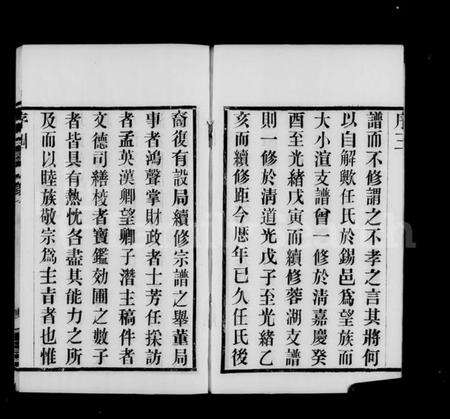 序三
譜而不修謂之不孝之言其將何
以自解歟任氏於錫邑爲望族而
大小渲支譜曾一修於淸嘉慶癸
酉至光緒戊寅而續修蓉湖支譜
則一修於淸道光戊子至光緒乙
亥而續修距今歷年已久任氏後
裔復有設局續修宗譜之舉董局
事者鴻聲掌財政者士芳任採訪
者孟英漢卿望卿子潛主稿件者
文德司繕校者寶鑑効圃之數子
者皆具有熱忱各盡其能力之所
及而以睦族敬宗爲主吉者也惟